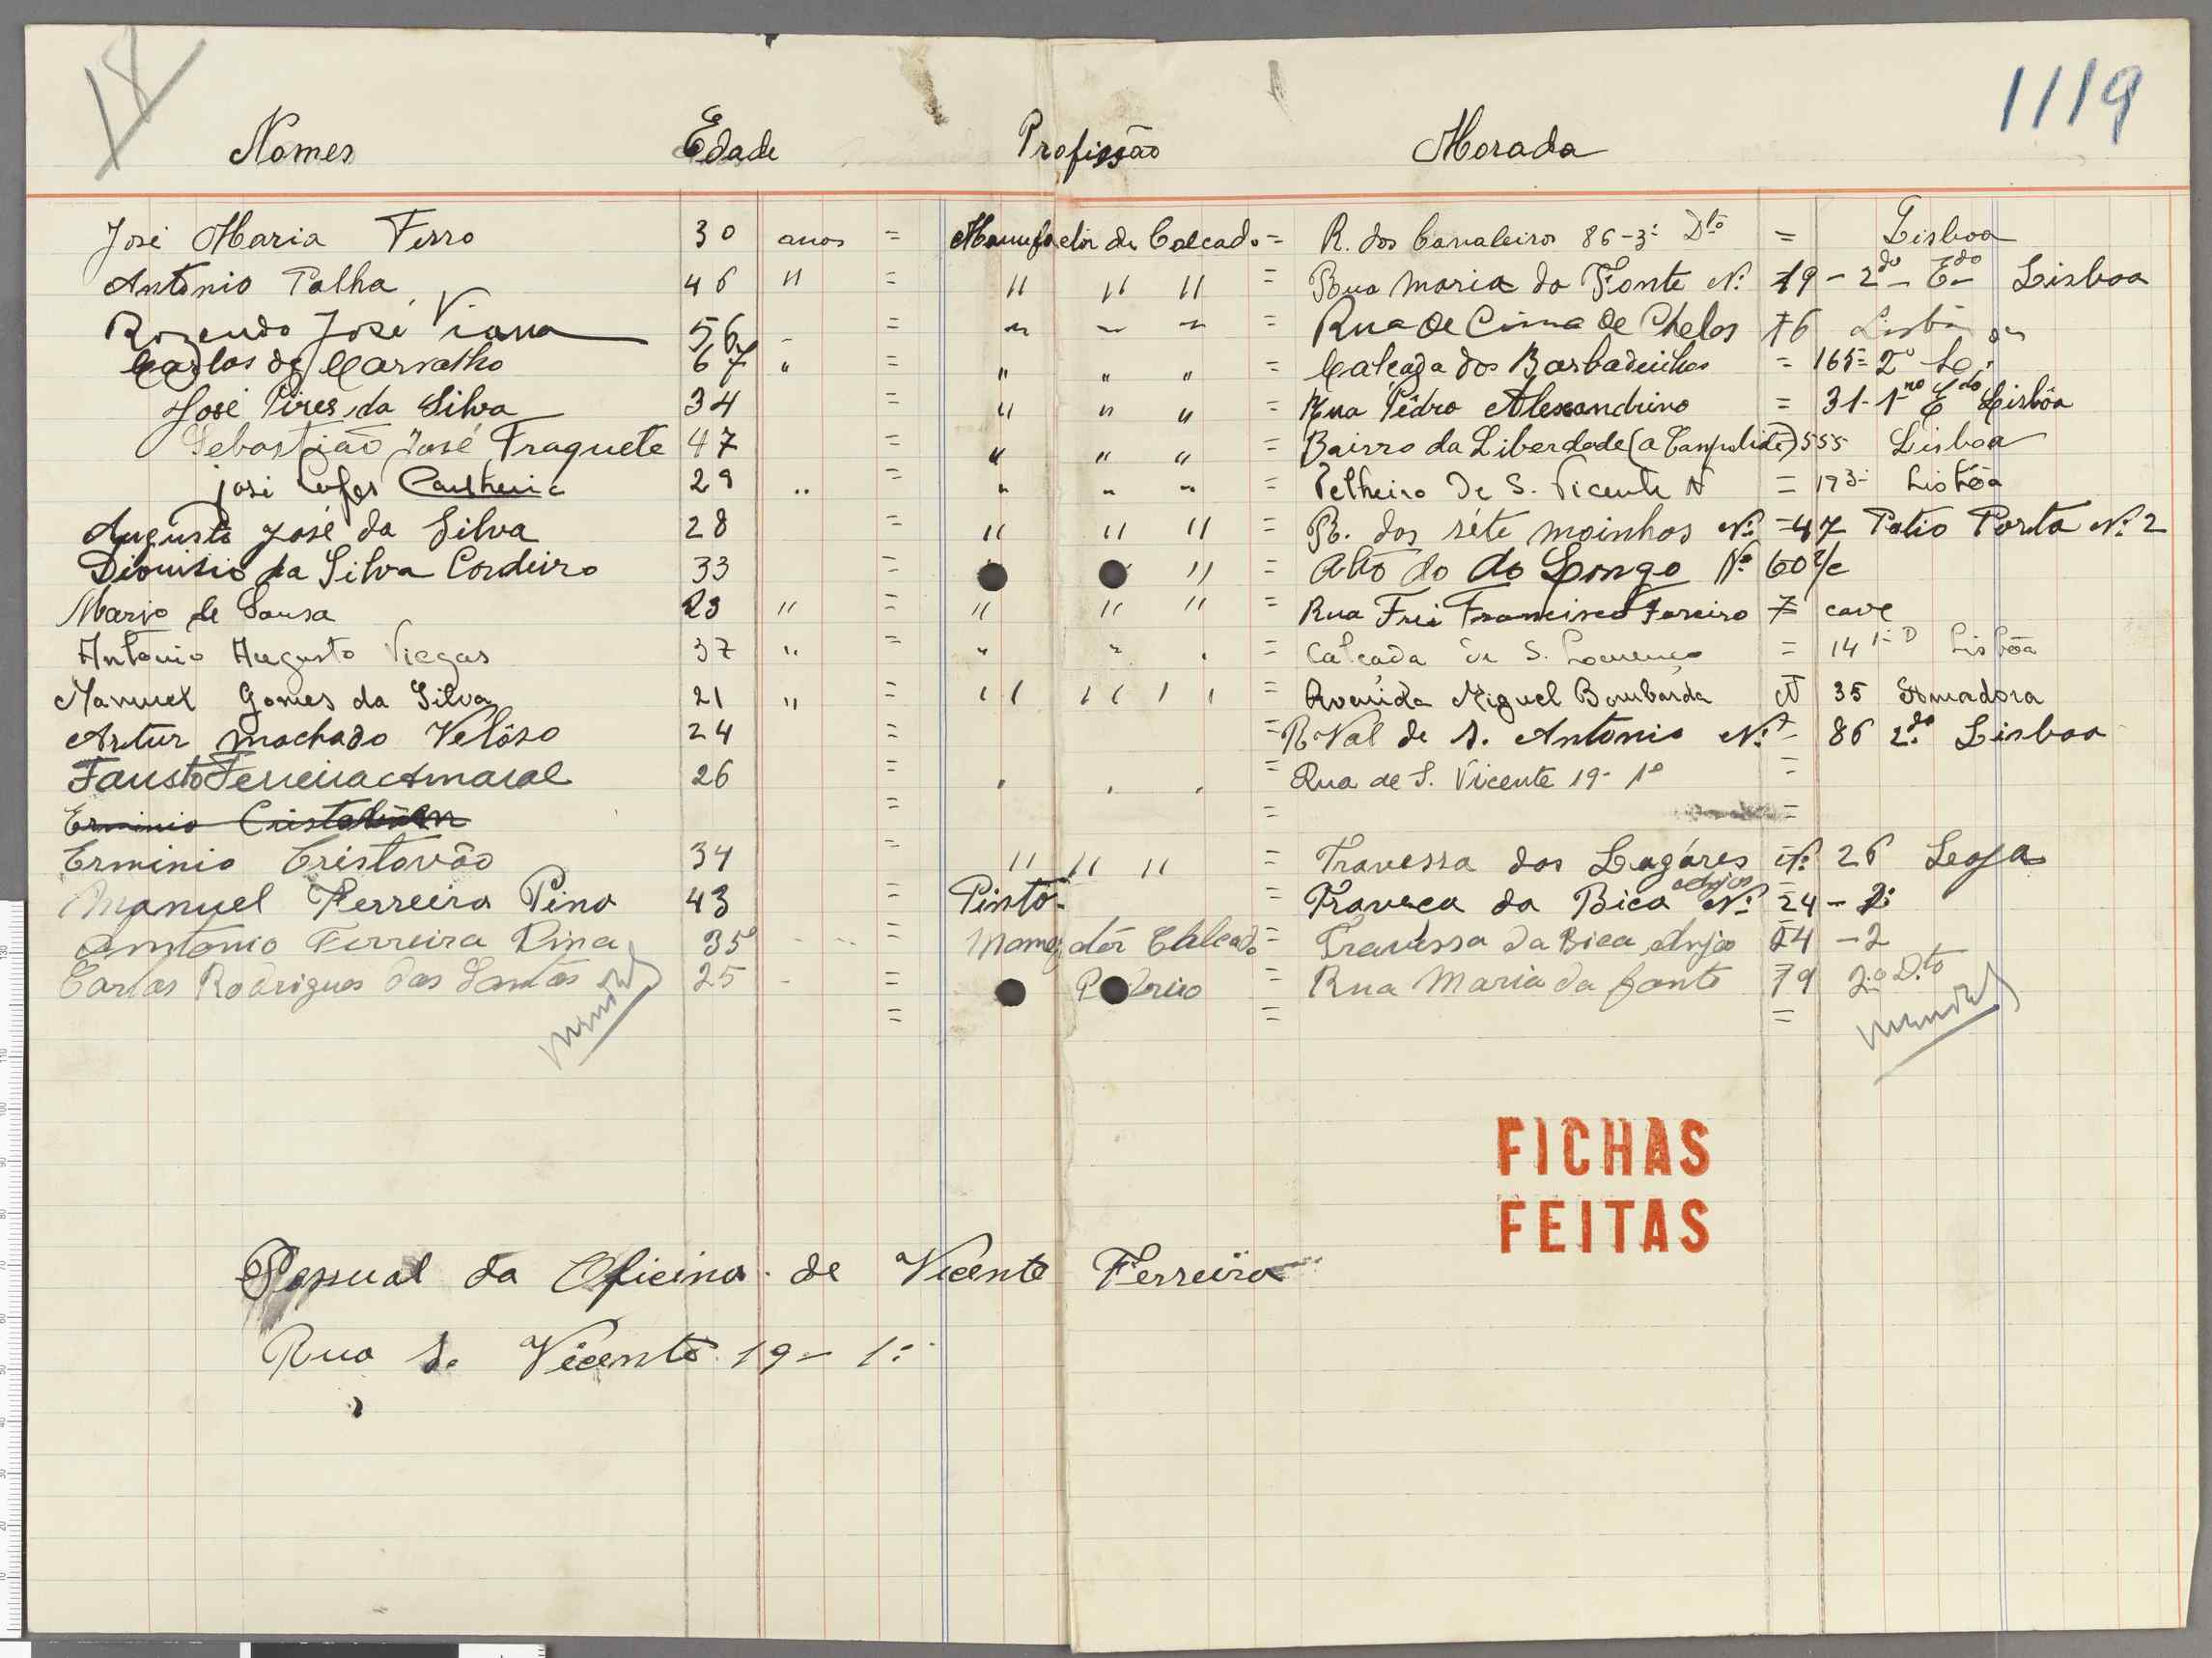 18
1119
Nomes Edade Profissão Morada
José Maria Ferro 30 anos = Manufactor de Calcado = R. dos Cavaleiros 86-3º Dto = Lisboa
António Palha 46 " = " " " = Rua Maria da Fonte Nº 19 - 2do Edo Lisboa
Rozendo José Viana 56 = " " " = Rua de Cima de Chelas 76
Carlos de Carvalho 67 " = " " " = Calçada dos Barbadinhos = 165 = 2º
José Pires da Silva 34 = " " " = Rua Pêdro Alexandrino = 31-1no Edo Lisbôa
Sebastião José Fraquete 47 = " " " = Bairro da Liberdade (a Campolide) 555 Lisboa
josé Lopes 29 " = " " " = Telheiro de S. Vicente N = 17 3º Lisbôa
Augusto José da Silva 28 = " " " = R. dos séte moinhos Nº = 47 Patio Porta Nº 2
Dionisio da Silva Cordeiro 33 = " = Alto do do Longo Nº 60 r/c
Mario de Sousa 23 " = " " " = Rua Frei Francisco Foreiro 7 cave
Antonio Augusto Viegas 37 " = " " " = Calçada de S. Lourenço = 14 1º D Lisbôa
Manuel Gomes da Silva 21 " = " " " = Avenida Miguel Bombarda N 35 Amadora
Artur machado Velôso 24 = = R Val de S. Antonio Nº - 86 2do Lisboa
Fausto Ferreira Amaral 26 = " " " = Rua de S. Vicente 19-1º =
Erminio = = =
Erminio Cristovão 34 = " " " = Travessa dos Lagáres Nº 26 Leoja
Manuel Ferreira Pina 43 = Pintor = Traveça da Bica Anjos Nº 24 - 2º
António Ferreira Pina 35 = dôr Calcado = Travéssa da Bica Anjos 24 - 2
Carlos Rodrigues dos Santos 25 - = = Rua Maria da fonte 79 2º Dto
= = =
FICHAS
FEITAS
Pessual da Oficina de Vicente Ferreira
Rua S. Vicente 19 - 1º